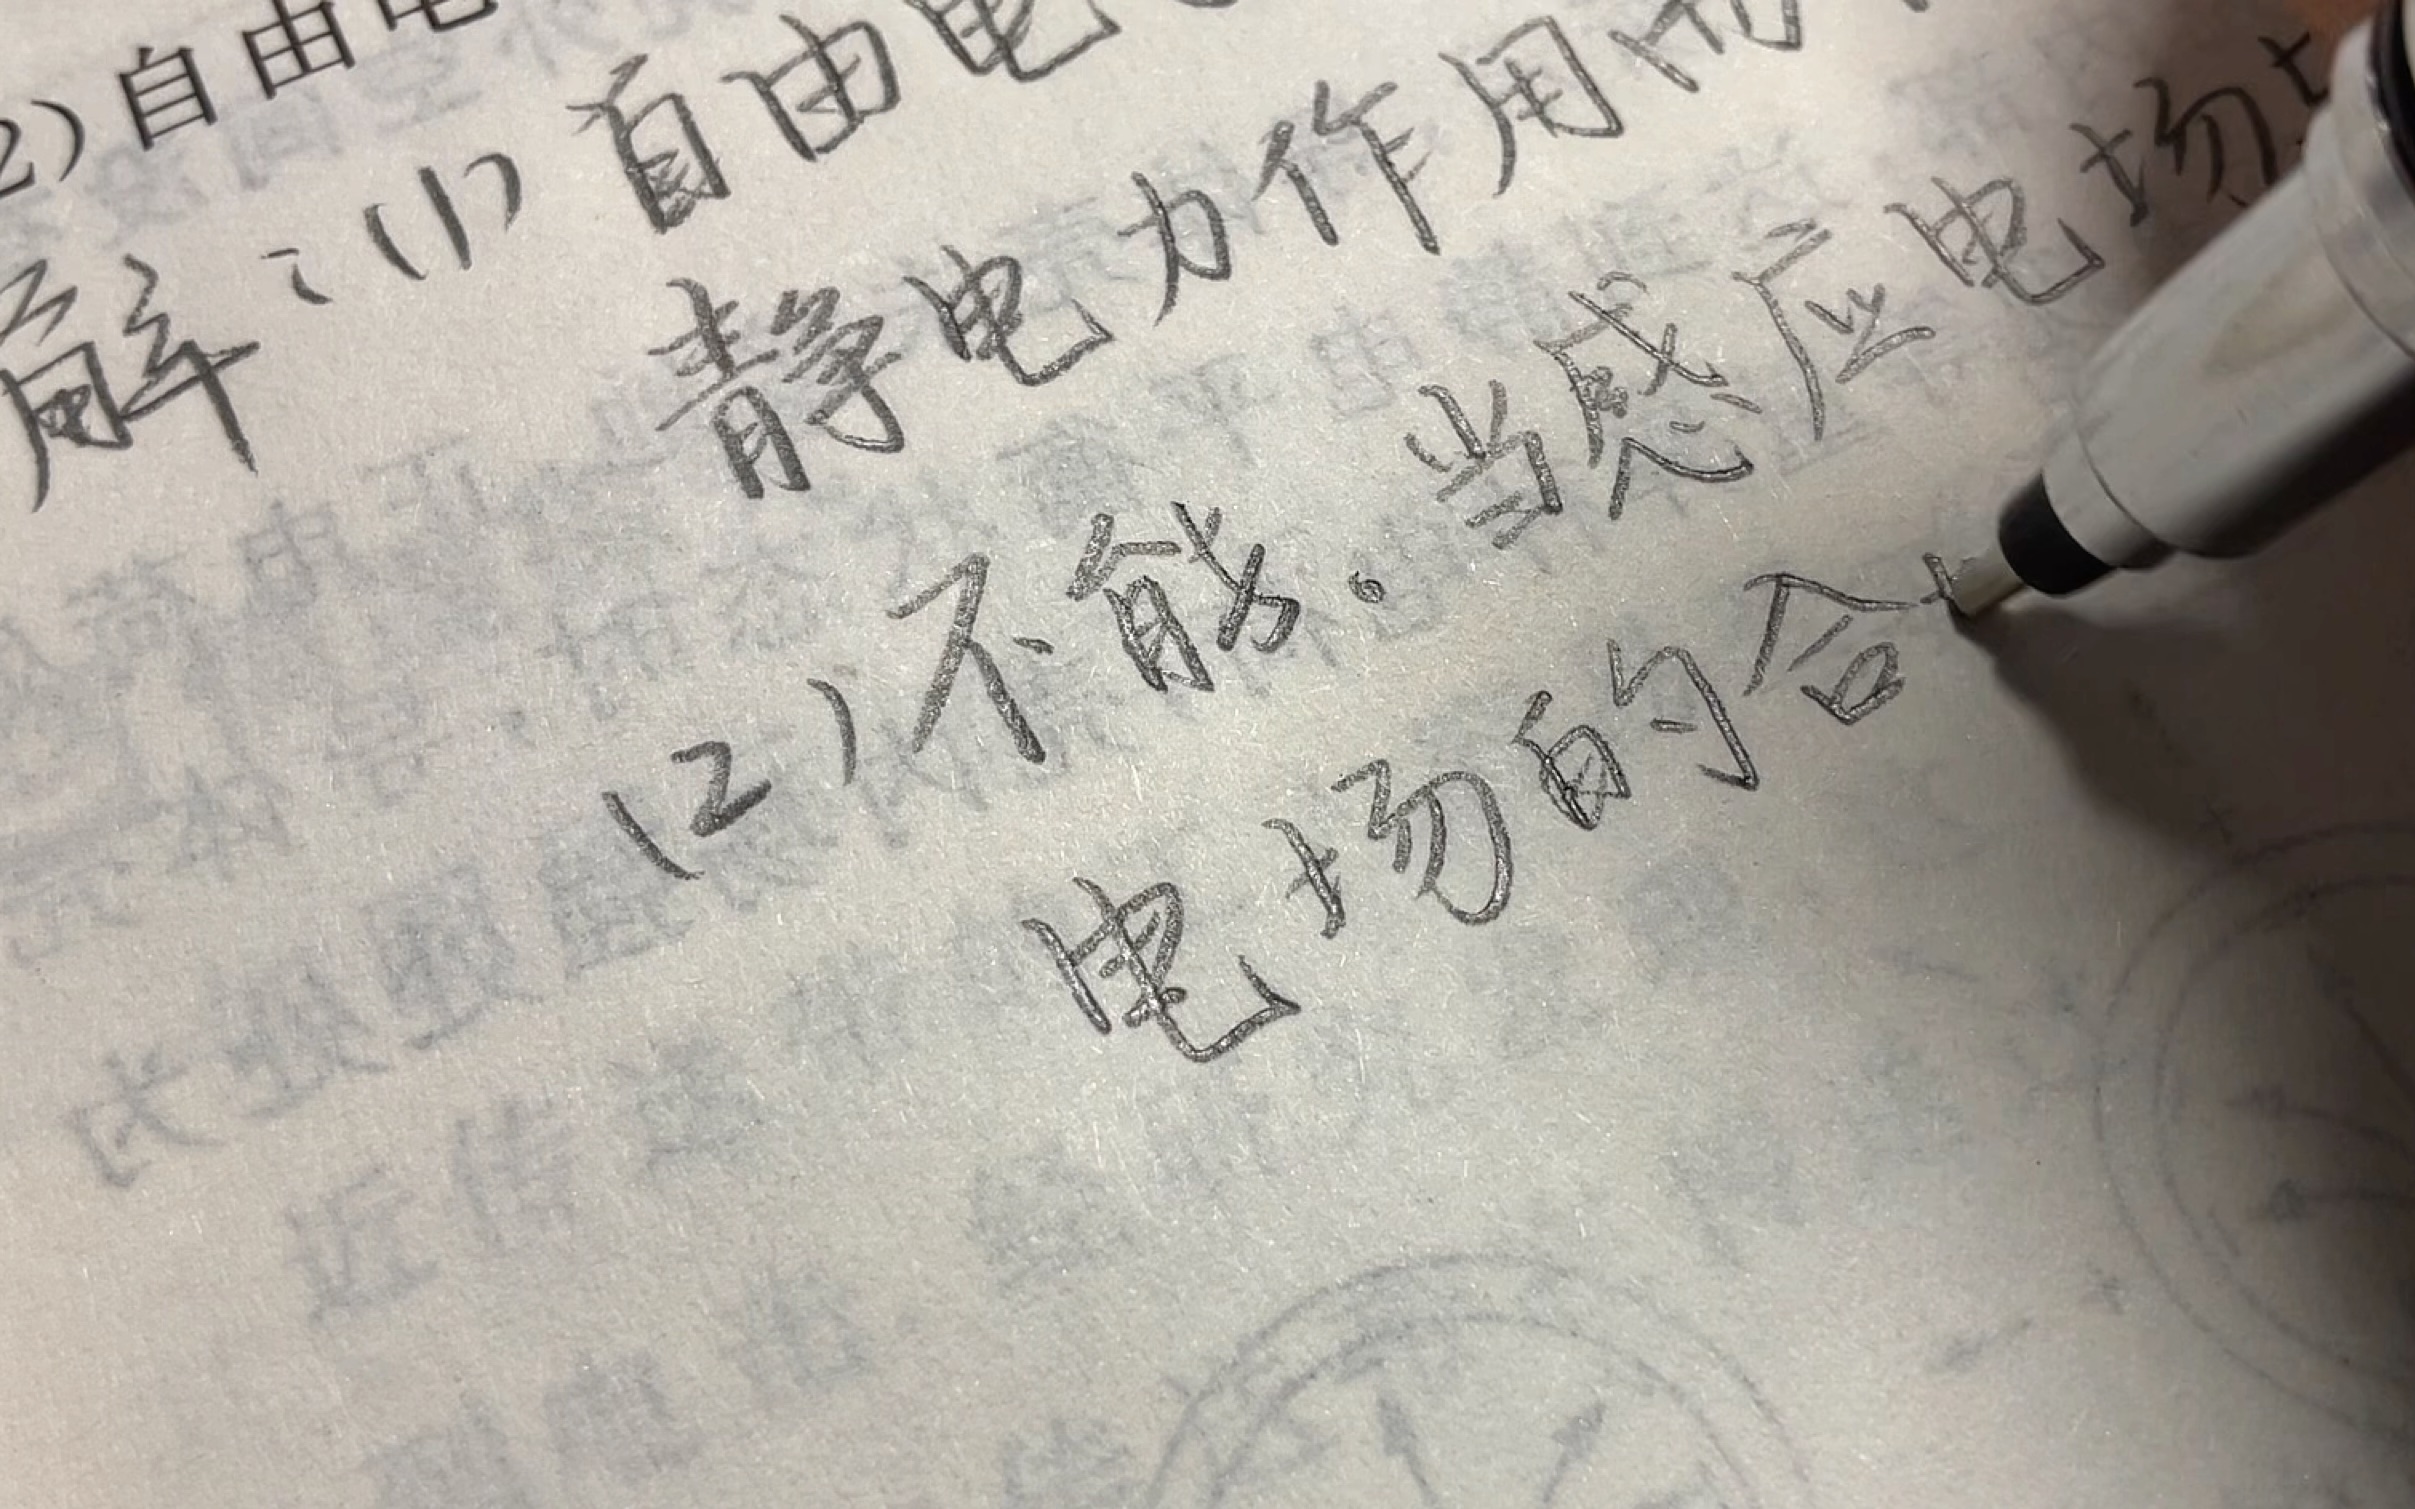 2) 自由电
解：(1) 自由电
静电力作用
(2) 不能。当感应电场
电场的合